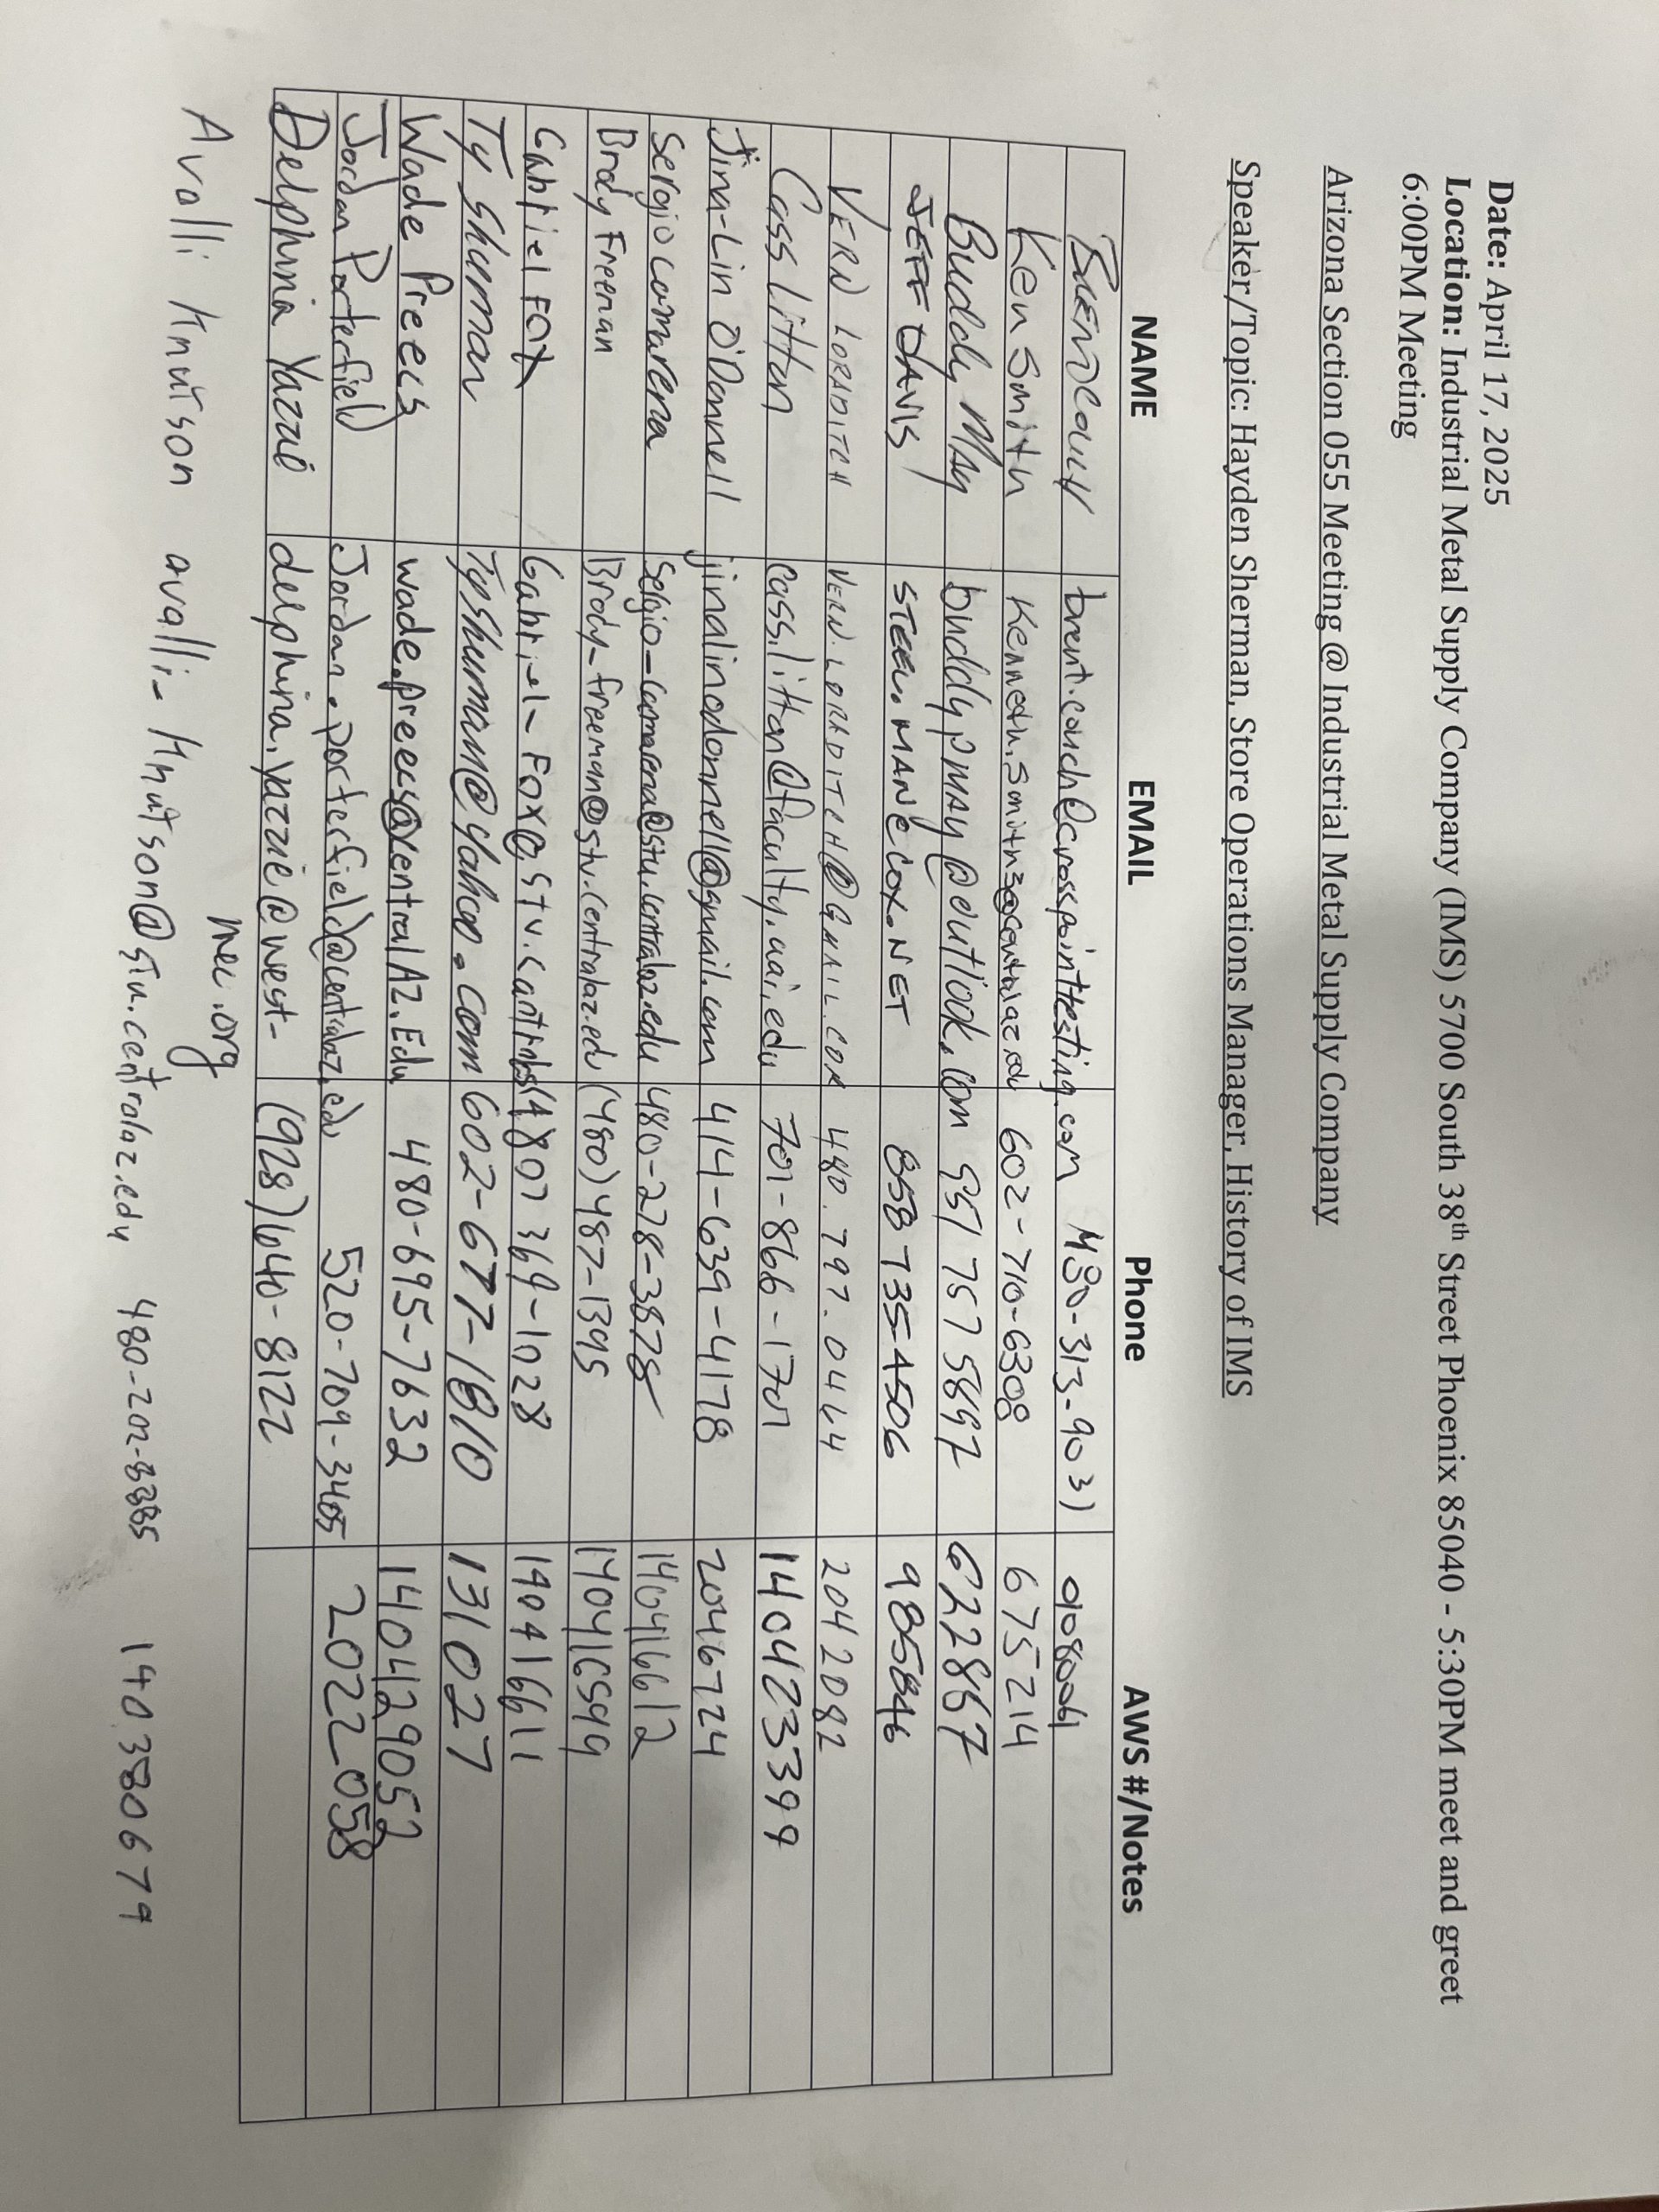 Date: April 17, 2025
Location: Industrial Metal Supply Company (IMS) 5700 South 38th Street Phoenix 85040 - 5:30PM meet and greet
6:00PM Meeting
Arizona Section 055 Meeting @ Industrial Metal Supply Company
Speaker/Topic: Hayden Sherman, Store Operations Manager, History of IMS
NAME EMAIL Phone AWS #/Notes
brent.couch@crosspointtesting.com 480-313-9031
Ken Smith Kenneth.Smith3@centralaz.edu 602-710-6308 675214
Buddy May buddypmay@outlook.com 951 757 5897 622867
JEFF DAVIS STEEL.MAN@COX.NET 858 735-4506 985846
VERN LORADITCH VERN.LORADITCH@GMAIL.COM 480.797.0444 2042082
Cass Litton cass.litton@faculty.uai.edu 701-866-1701 140423399
Jina-Lin O'Donnell jinalinodonnell@gmail.com 414-639-4178 2046724
Sergio Camarena Sergio-Camarena@stu.centralaz.edu 480-278-3878 140416612
Brody Freeman Brody-freeman@stu.centralaz.edu (480)487-1395 140416599
Gabriel FOX Gabriel-Fox@stu. (480) 369-1028 140416611
Ty Shuman Tyshuman@yahoo.com 602-677-1810 131027
Wade Preecs wade.preecs@centralAZ.Edu 480-695-7632 140429052
Jordan Porterfield Jordan.porterfield@centralaz.edu 520-709-3405 2022058
Delphina Yazzie delphina.yazzie@west- (928)640-8122
mec.org
Avalli Knutson avalli-Knutson@stu.centralaz.edu